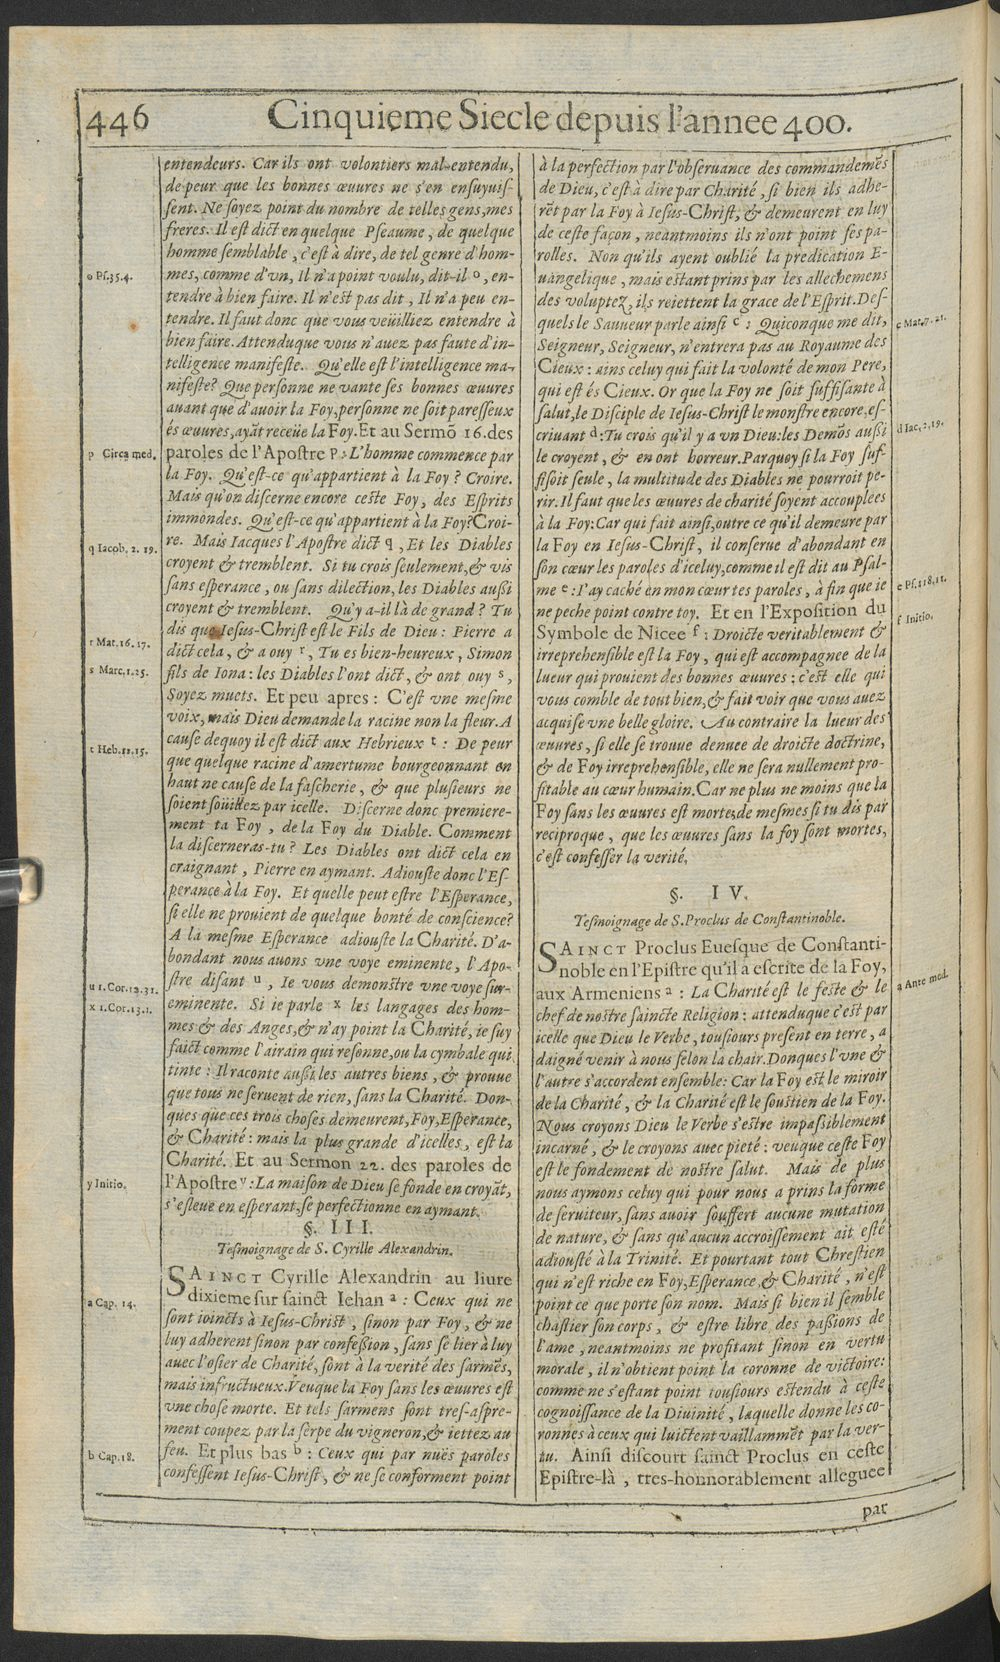 446
Cinquieme Siecle depuis l'annee 400.
entendeurs. Car ils ont volontiers mal-entendu,
de peur que les bonnes œuures ne s'en ensuyuis-
sent. Ne soyez point du nombre de telles gens, mes
freres. Il est dict en quelque Pseaume, de quelque
homme semblable, c'est à dire, de tel genre d'hom-
mes, comme d'vn, Il n'a point voulu, dit-il o, en-
tendre à bien faire. Il n'est pas dit, Il n'a peu en-
tendre. Il faut donc que vous veüilliez entendre à
bien faire. Attenduque vous n'auez pas faute d'in-
telligence manifeste. Qu'elle est l'intelligence ma-
nifeste? Que personne ne vante ses bonnes œuures
auant que d'auoir la Foy, personne ne soit paresseux
és œuures, ayãt receüe la Foy. Et au Sermõ 16. des
paroles de l'Apostre p : L'homme commence par
la Foy. Qu'est-ce qu'appartient à la Foy? Croire.
Mais qu'on discerne encore ceste Foy, des Esprits
immondes. Qu'est-ce qu'appartient à la Foy? Croi-
re. Mais Iacques l'Apostre dict q, Et les Diables
croyent & tremblent. Si tu crois seulement, & vis
sans esperance, ou sans dilection, les Diables aussi
croyent & tremblent. Qu'y a-il là de grand? Tu
dis que Iesus-Christ est le Fils de Dieu: Pierre a
dict cela, & a ouy r, Tu es bien-heureux, Simon
fils de Iona: les Diables l'ont dict, & ont ouy s,
Soyez muets. Et peu apres: C'est vne mesme
voix, mais Dieu demande la racine non la fleur. A
cause dequoy il est dict aux Hebrieux t : De peur
que quelque racine d'amertume bourgeonnant en
haut ne cause de la fascherie, & que plusieurs ne
soient soüillez par icelle. Discerne donc premiere-
ment ta Foy, de la Foy du Diable. Comment
la discerneras-tu? Les Diables ont dict cela en
craignant, Pierre en aymant. Adiouste donc l'Es-
perance à la Foy. Et quelle peut estre l'Esperance,
si elle ne prouient de quelque bonté de conscience?
A la mesme Esperance adiouste la Charité. D'a-
bondant nous auons vne voye eminente, l'Apo-
stre disant u, Ie vous demonstre vne voye sur-
eminente. Si ie parle x les langages des hom-
mes & des Anges, & n'ay point la Charité, ie suy
faict comme l'airain qui resonne, ou la cymbale qui
tinte: Il raconte aussi les autres biens, & prouue
que tous ne seruent de rien, sans la Charité. Don-
ques que ces trois choses demeurent, Foy, Esperance,
& Charité: mais la plus grande d'icelles, est la
Charité. Et au Sermon 22. des paroles de
l'Apostre y : La maison de Dieu se fonde en croyãt,
s'esleue en esperant, se perfectionne en aymant.
§. III.
Tesmoignage de S. Cyrille Alexandrin.
SAINCT Cyrille Alexandrin au liure
dixieme sur sainct Iehan a : Ceux qui ne
sont ioincts à Iesus-Christ, sinon par Foy, & ne
luy adherent sinon par confession, sans se lier à luy
auec l'osier de Charité, sont à la verité des sarmẽs,
mais infructueux. Veuque la Foy sans les œuures est
vne chose morte. Et tels sarmens sont tres-aspre-
ment coupez par la serpe du vigneron, & iettez au
feu. Et plus bas b : Ceux qui par nuës paroles
confessent Iesus-Christ, & ne se conforment point
o Ps.35.4.
p Circa med.
q Iacob. 2. 19.
r Mat.16.17.
s Marc.1.25.
t Heb.11.15.
u 1.Cor.12.31.
x 1.Cor.13.1.
y Initio.
a Cap. 14.
b Cap.18.
à la perfection par l'obseruance des commandemẽs
de Dieu, c'est à dire par Charité, si bien ils adhe-
rẽt par la Foy à Iesus-Christ, & demeurent en luy
de ceste façon, neantmoins ils n'ont point ses pa-
rolles. Non qu'ils ayent oublié la predication E-
uangelique, mais estant prins par les allechemens
des voluptez, ils reiettent la grace de l'Esprit. Des-
quels le Sauueur parle ainsi c : Quiconque me dit,
Seigneur, Seigneur, n'entrera pas au Royaume des
Cieux: ains celuy qui fait la volonté de mon Pere,
qui est és Cieux. Or que la Foy ne soit suffisante à
salut, le Disciple de Iesus-Christ le monstre encore, es-
criuant d : Tu crois qu'il y a vn Dieu: les Demõs aussi
le croyent, & en ont horreur. Parquoy si la Foy suf-
fisoit seule, la multitude des Diables ne pourroit pe-
rir. Il faut que les œuures de charité soyent accouplees
à la Foy: Car qui fait ainsi, outre ce qu'il demeure par
la Foy en Iesus-Christ, il conserue d'abondant en
son cœur les paroles d'iceluy, comme il est dit au Psal-
me e : I'ay caché en mon cœur tes paroles, à fin que ie
ne peche point contre toy. Et en l'Exposition du
Symbole de Nicee f : Droicte veritablement &
irreprehensible est la Foy, qui est accompagnee de la
lueur qui prouient des bonnes œuures: c'est elle qui
vous comble de tout bien, & fait voir que vous auez
acquise vne belle gloire. Au contraire la lueur des
œuures, si elle se trouue denuee de droicte doctrine,
& de Foy irreprehensible, elle ne sera nullement pro-
fitable au cœur humain. Car ne plus ne moins que la
Foy sans les œuures est morte, de mesmes si tu dis par
reciproque, que les œuures sans la foy sont mortes,
c'est confesser la verité.
§. IV.
Tesmoignage de S. Proclus de Constantinoble.
SAINCT Proclus Euesque de Constanti-
noble en l'Epistre qu'il a escrite de la Foy,
aux Armeniens a : La Charité est le feste & le
chef de nostre saincte Religion: attenduque c'est par
icelle que Dieu le Verbe, tousiours present en terre, a
daigné venir à nous selon la chair. Donques l'vne &
l'autre s'accordent ensemble: Car la Foy est le miroir
de la Charité, & la Charité est le soustien de la Foy.
Nous croyons Dieu le Verbe s'estre impassiblement
incarné, & le croyons auec pieté: veuque ceste Foy
est le fondement de nostre salut. Mais de plus
nous aymons celuy qui pour nous a prins la forme
de seruiteur, sans auoir souffert aucune mutation
de nature, & sans qu'aucun accroissement ait esté
adiousté à la Trinité. Et pourtant tout Chrestien
qui n'est riche en Foy, Esperance, & Charité, n'est
point ce que porte son nom. Mais si bien il semble
chastier son corps, & estre libre des passions de
l'ame, neantmoins ne profitant sinon en vertu
morale, il n'obtient point la coronne de victoire:
comme ne s'estant point tousiours estendu à ceste
cognoissance de la Diuinité, laquelle donne les co-
ronnes à ceux qui luictent vaillammẽt par la ver-
tu. Ainsi discourt sainct Proclus en ceste
Epistre-là, tres-honnorablement alleguee
par
c Mat.7.21.
d Iac.2.19.
e Ps.118.11.
f Initio.
a Ante med.